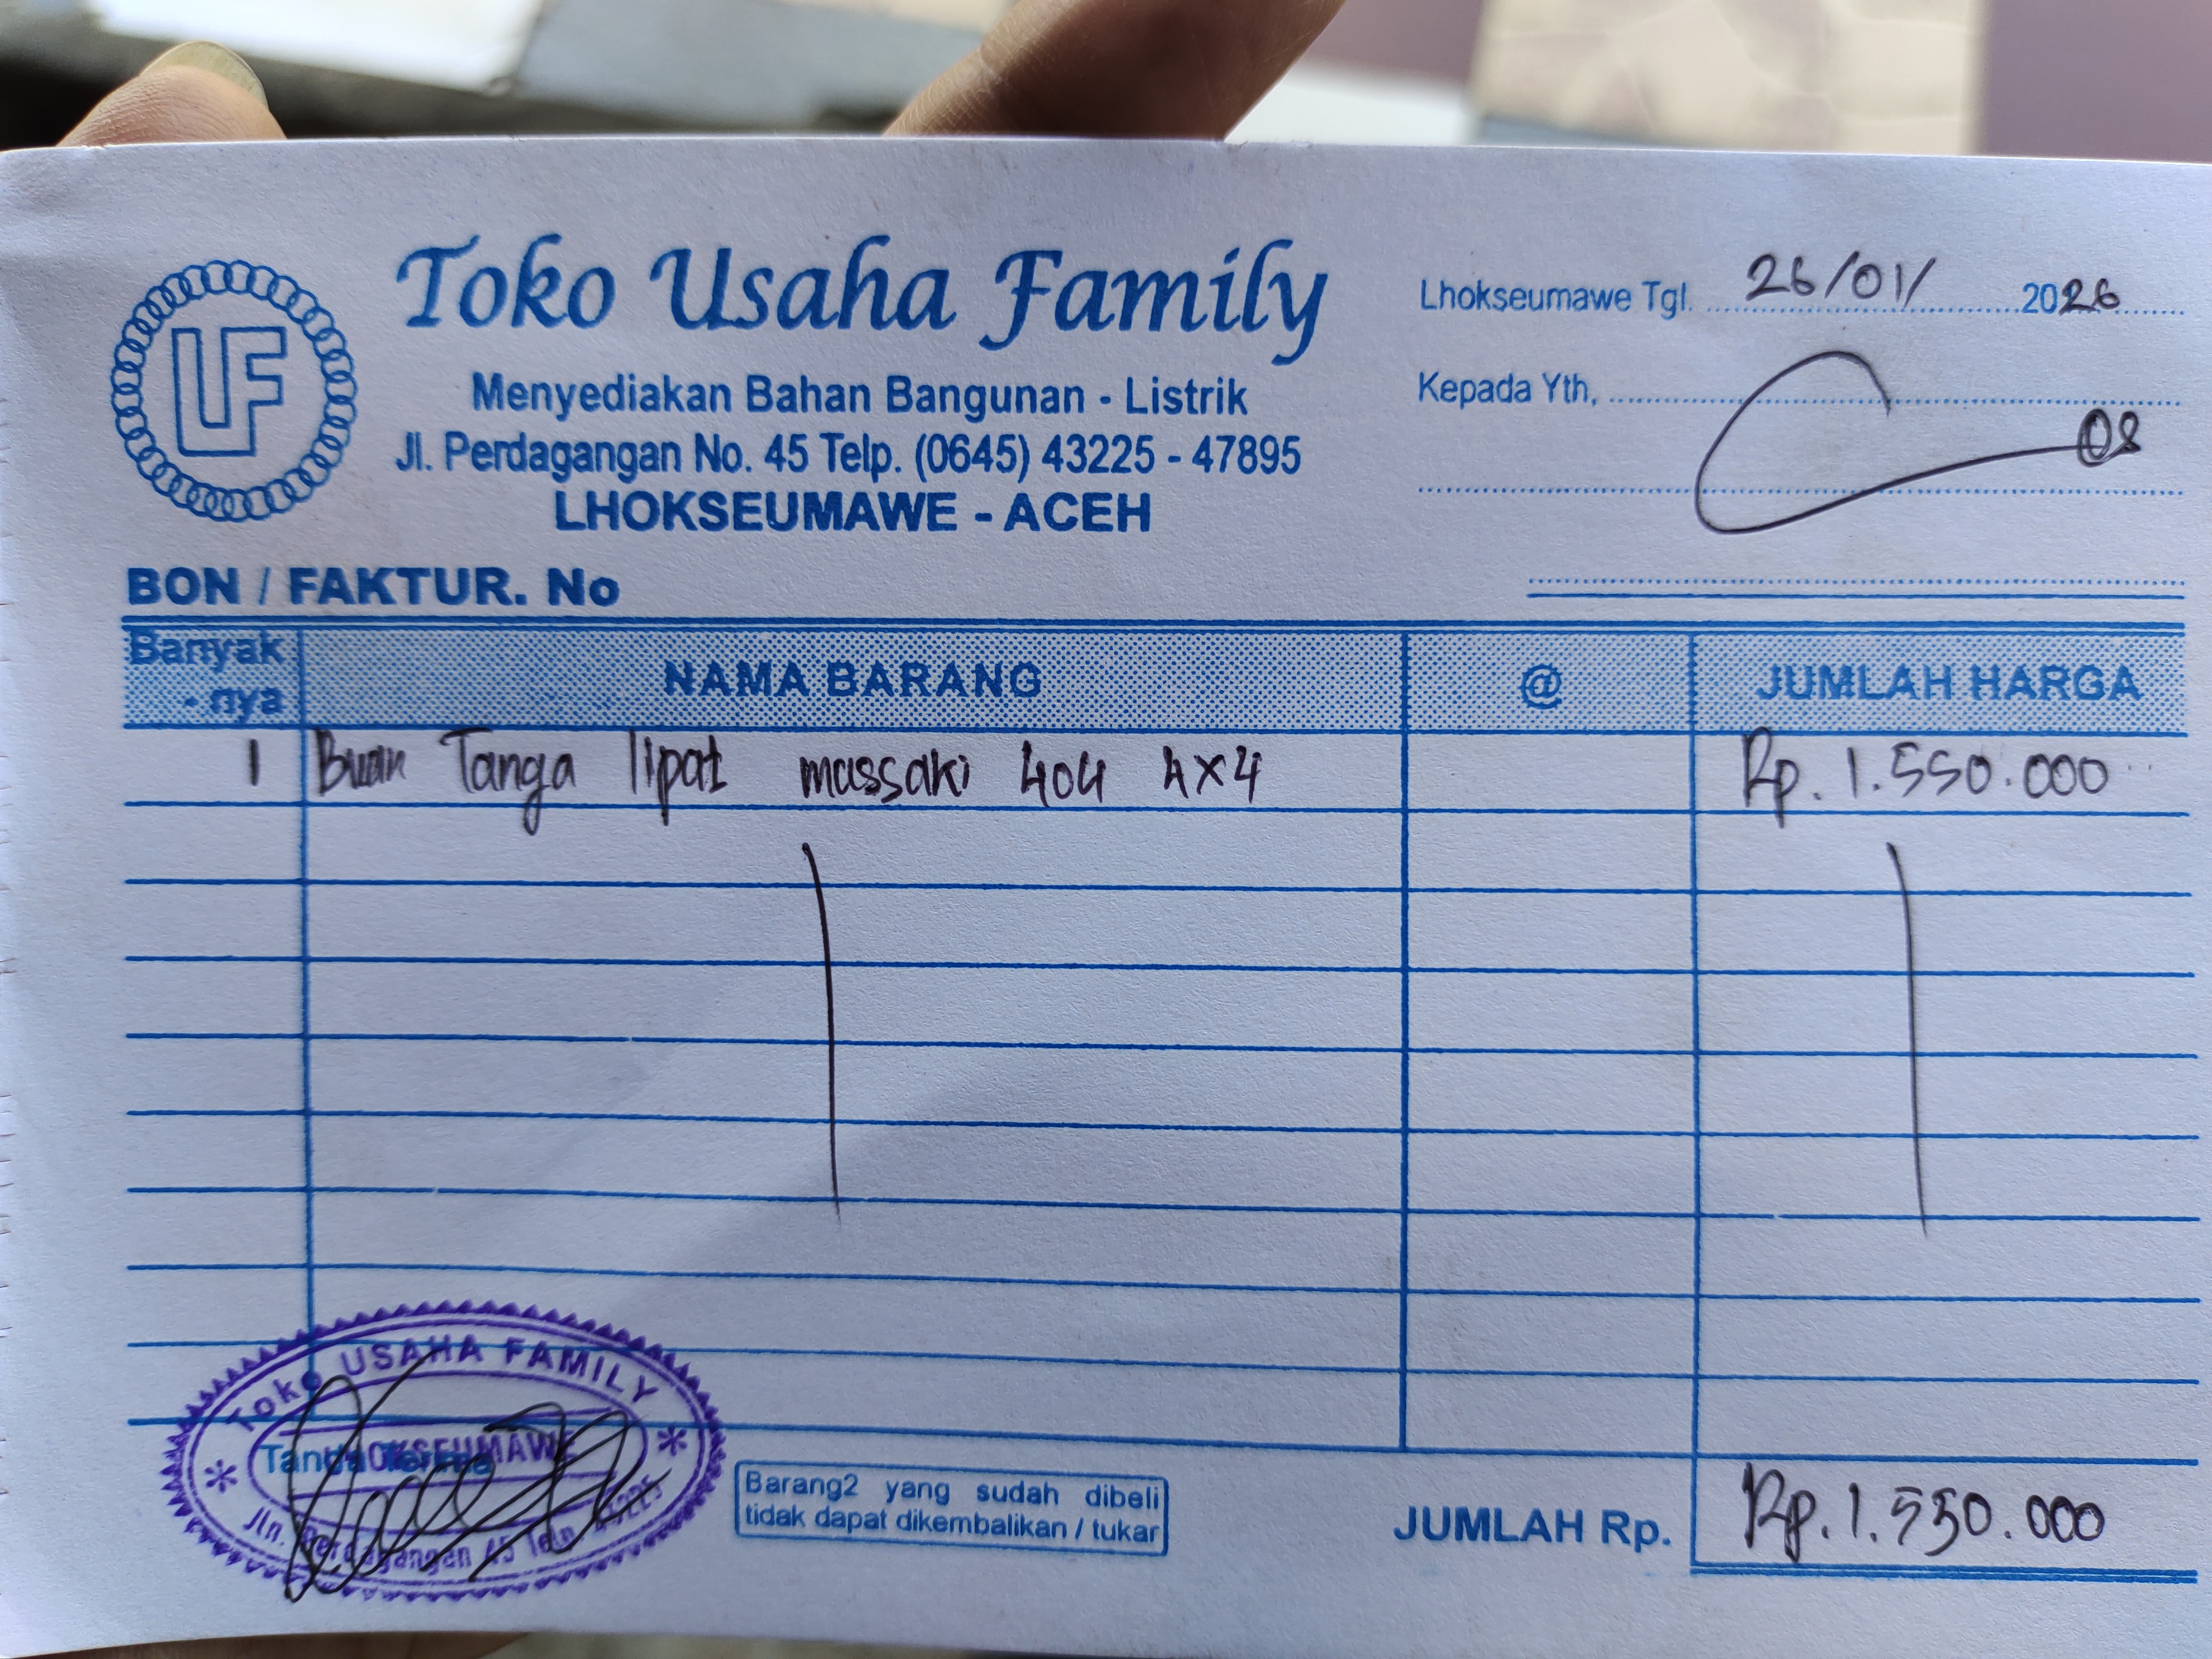 Toko Usaha Family
Menyediakan Bahan Bangunan - Listrik
Jl. Perdagangan No. 45 Telp. (0645) 43225 - 47895
LHOKSEUMAWE - ACEH
UF
Lhokseumawe Tgl. 26/01/ 2026
Kepada Yth,
08
BON / FAKTUR. No
Banyak - nya NAMA BARANG @ JUMLAH HARGA
1 Buah Tanga lipat massaki 404 4x4 Rp. 1.550.000
Toko USAHA FAMILY
LHOKSEUMAWE
Tanda Terima
Jln. Perdagangan 45 Teln 43225
Barang2 yang sudah dibeli
tidak dapat dikembalikan / tukar
JUMLAH Rp. Rp. 1.550.000